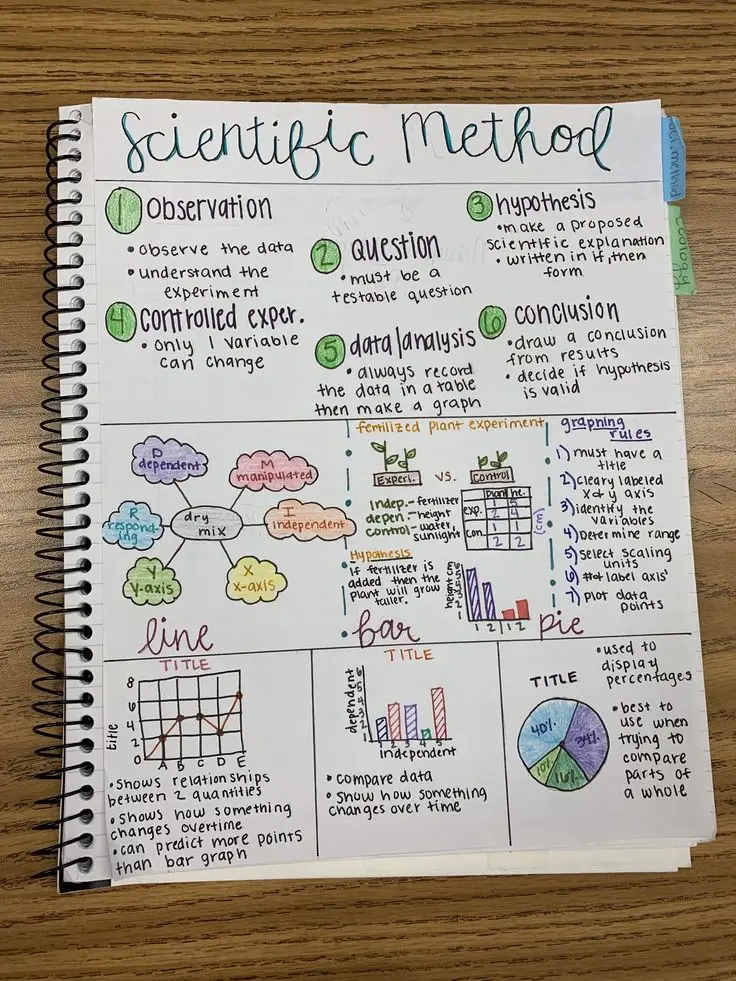 Scientific Method
sci. method
ecology
1 Observation
• observe the data
• understand the
experiment
2 Question
• must be a
testable question
3 hypothesis
• make a proposed
scientific explanation
• written in if, then
form
4 Controlled exper.
• only 1 variable
can change
5 data/analysis
• always record
the data in a table
then make a graph
6 conclusion
• draw a conclusion
from results
• decide if hypothesis
is valid
D
dependent
M
manipulated
R
respond-
ing
dry
mix
I
independent
Y
Y-axis
X
x-axis
fertilized plant experiment
Experi. vs. Control
indep.- fertilizer
depen.- height
control- water,
sunlight
plant he.
exp.
2 4
con.
1 1
2 2
(cm)
Hypothesis
If fertilizer is
added then the
plant will grow
taller.
height cm
1 2 1 2
graphing
rules
1) must have a
title
2) cleary labeled
x & y axis
3) identify the
variables
4) Determine range
5) select scaling
units
6) # & label axis'
7) plot data
points
line
TITLE
title
8
6
4
2
0
A B C D E
• Shows relationships
between 2 quantities
• shows how something
changes overtime
• can predict more points
than bar graph
bar
TITLE
dependent
1 2 3 4 5
independent
• compare data
• show how something
changes over time
pie
TITLE
40%
34%
10%
16%
• used to
display
percentages
• best to
use when
trying to
compare
parts of
a whole